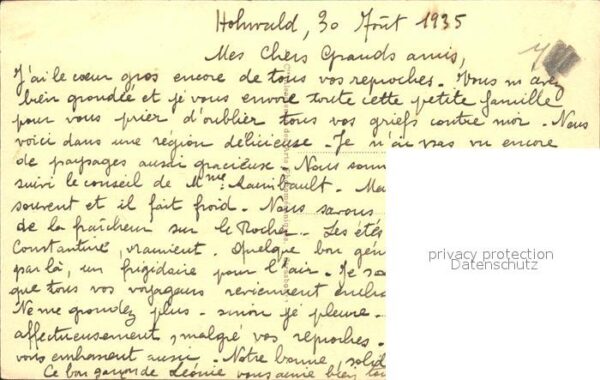 Hohwald, 30 Août 1935
Mes Chers Grands amis,
J'ai le cœur gros encore de tous vos reproches. Vous m'avez
bien grondée et je vous envoie toute cette petite famille
pour vous prier d'oublier tous vos griefs contre moi. Nous
voici dans une région délicieuse. Je n'ai pas vu encore
de paysages aussi gracieuse. Nous somm
suivi le conseil de Mme
souvent et il fait froid. Nous savons
de la fraîcheur sur le Rocher. Les étés
Constantine, vraiment. Quelque bon gén
par là, un frigidaire pour l'air. Je sa
que tous vos voyageurs reviennent encha
Ne me grondez plus - sinon je pleure.
affectueusement, malgré vos reproches.
vous embrassent aussi. Notre bonne, solid
Ce bon garçon de Léonie vous aime bien
privacy protection
Datenschutz